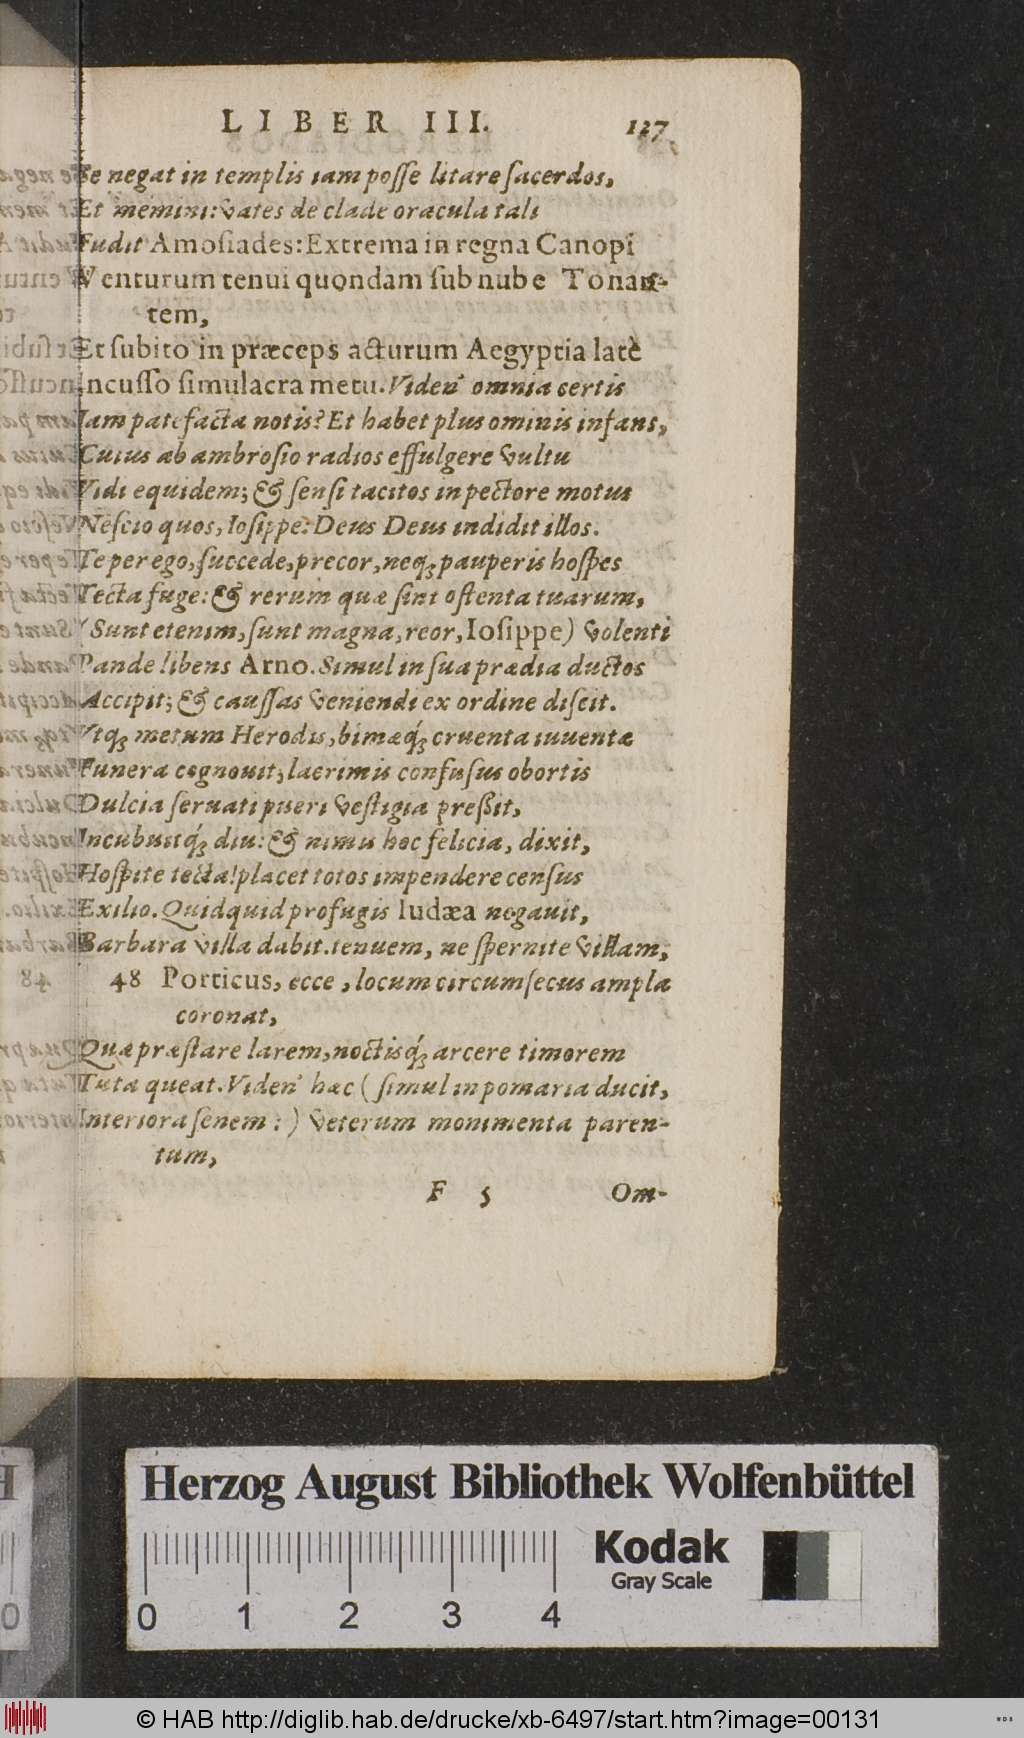 LIBER III. 137
Se negat in templis iam posse litare sacerdos,
Et memini: vates de clade oracula tali
Fudit Amosiades: Extrema in regna Canopi
Venturum tenui quondam sub nube Tonan-
tem,
Et subito in præceps acturum Aegyptia latè
Incusso simulacra metu. Viden' omnia certis
Iam patefacta notis? Et habet plus ominis infans,
Cuius ab ambrosio radios effulgere vultu
Vidi equidem; & sensi tacitos in pectore motus
Nescio quos, Iosippe: Deus Deus indidit illos.
Te per ego, succede, precor, neq; pauperis hospes
Tecta fuge: & rerum quæ sint ostenta tuarum,
(Sunt etenim, sunt magna, reor, Iosippe) volenti
Pande libens Arno. Simul in sua prædia ductos
Accipit; & caussas veniendi ex ordine discit.
Vtq; metum Herodis, bimæq́; cruenta iuuentæ
Funera cognouit; lacrimis confusus obortis
Dulcia seruati pueri vestigia preßit,
Incubuitq́; diu: & nimis hoc felicia, dixit,
Hospite tecta! placet totos impendere census
Exilio. Quidquid profugis Iudæa negauit,
Barbara villa dabit. tenuem, ne spernite villam;
48 Porticus, ecce, locum circumsecus ampla
coronat,
Quæ præstare larem, noctisq́; arcere timorem
Tuta queat. Viden' hæc (simul in pomaria ducit,
Interiora senem:) veterum monimenta paren-
tum,
F 5 Om-
Herzog August Bibliothek Wolfenbüttel
Kodak
Gray Scale
0 1 2 3 4
© HAB http://diglib.hab.de/drucke/xb-6497/start.htm?image=00131